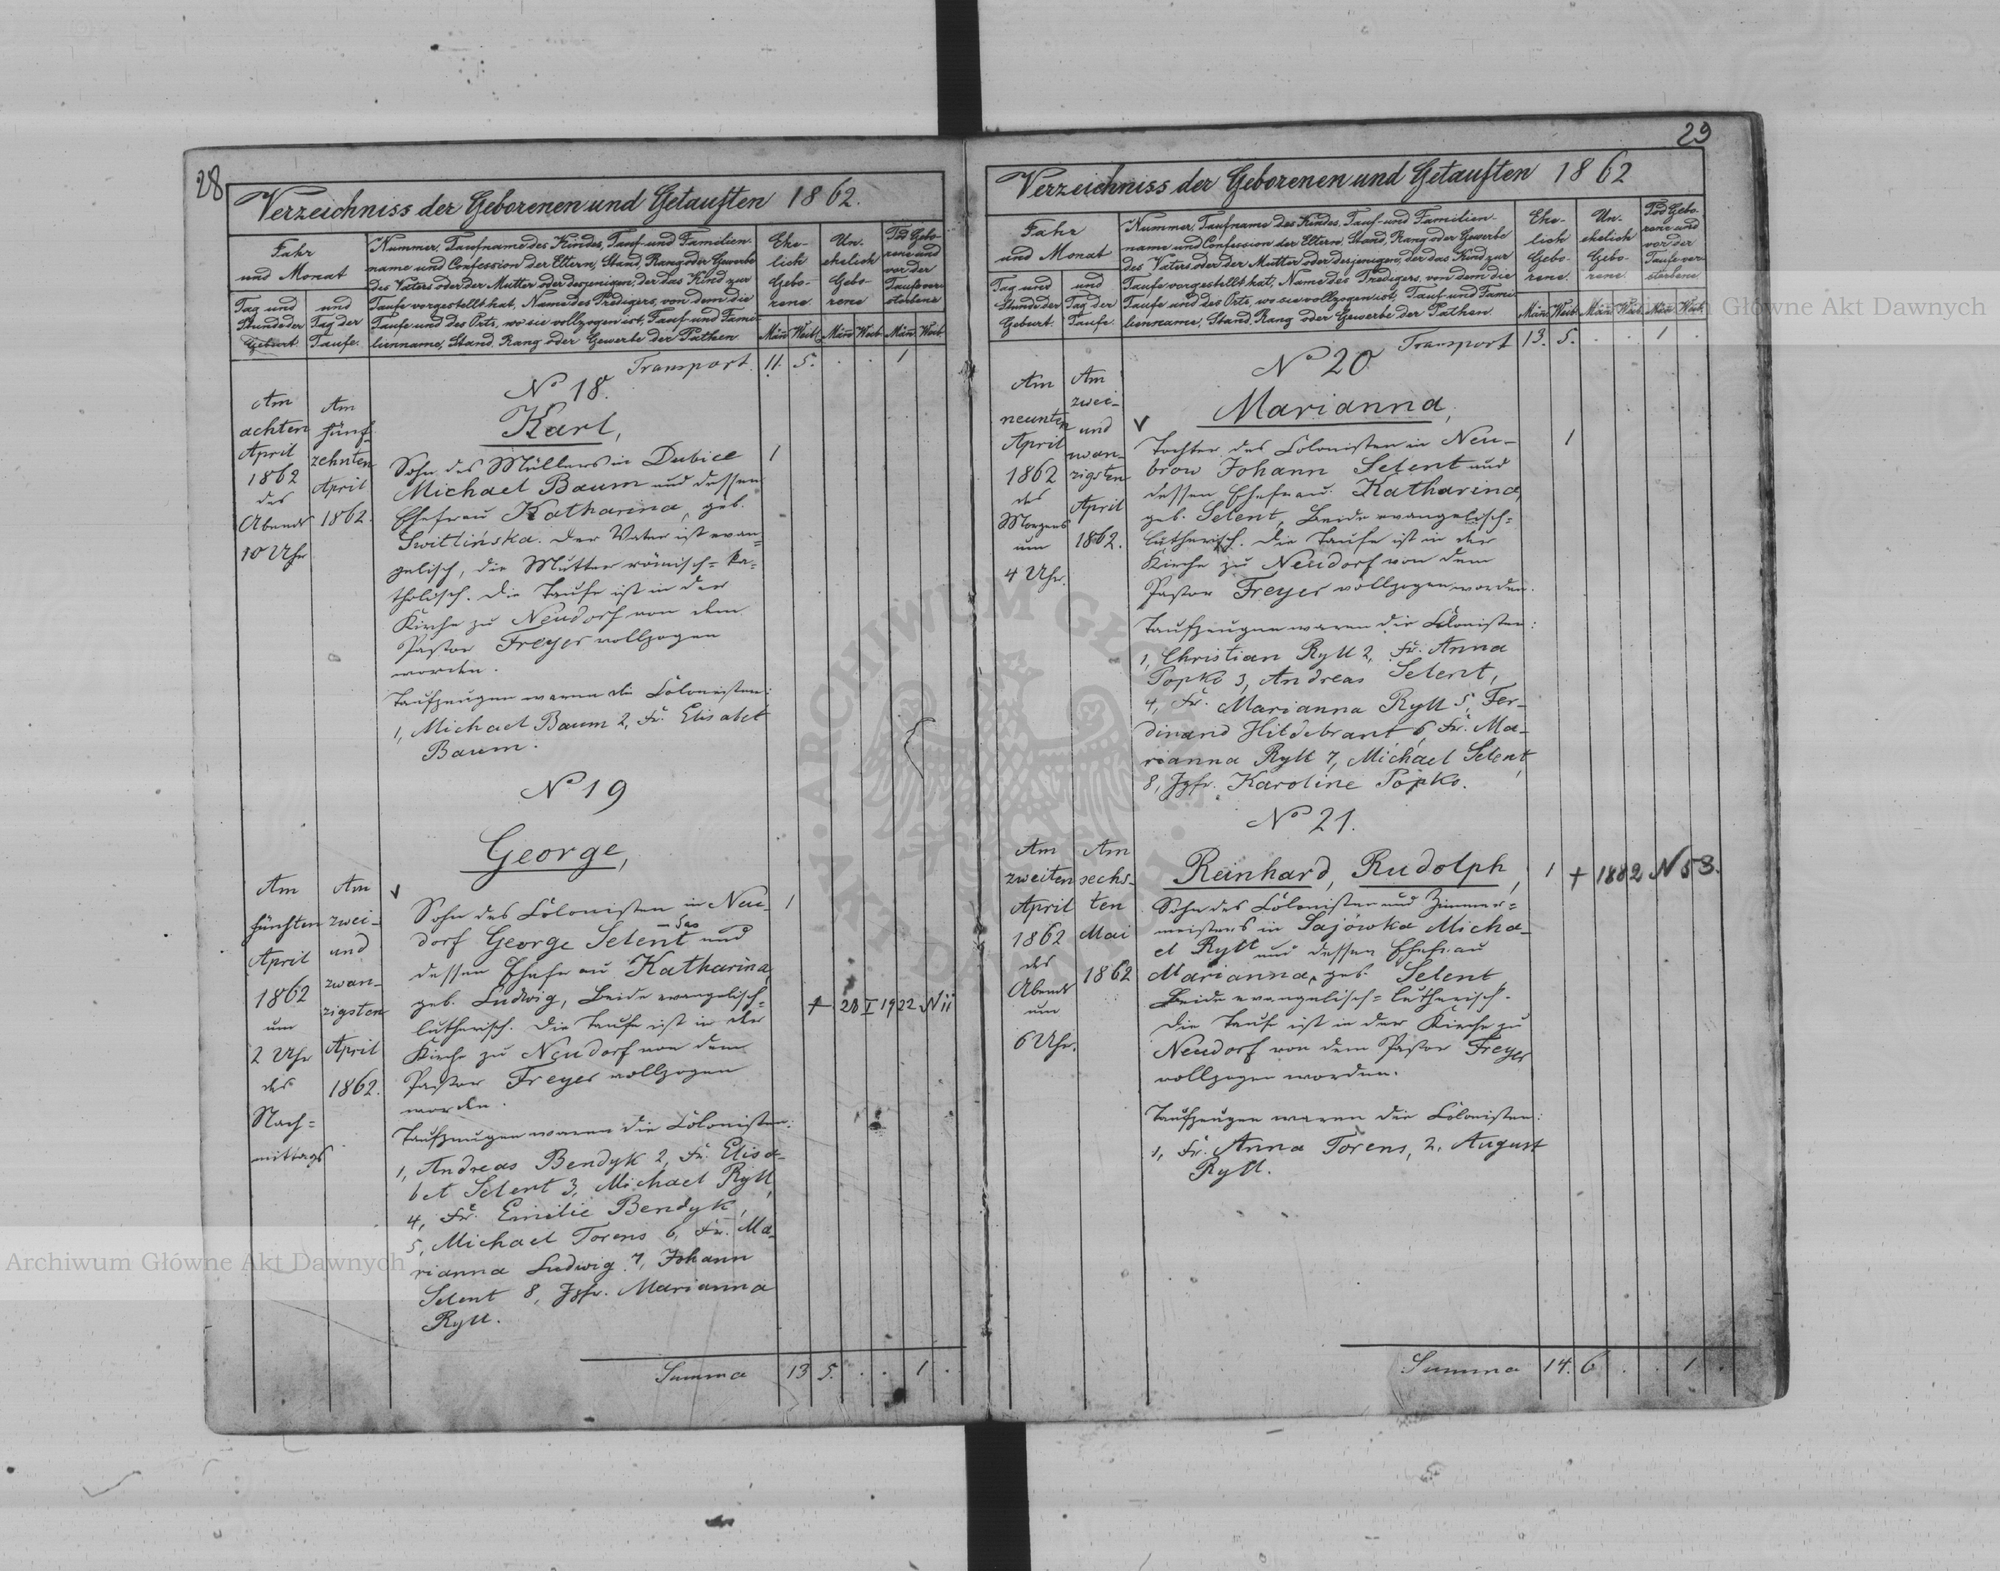 28
Verzeichniss der Geborenen und Getauften 1862.
Jahr
und Monat
Tag und
Stunde der
Geburt.
und
Tag der
Taufe.
Nummer, Taufname des Kindes, Tauf- und Familien-
name und Confession der Eltern, Stand, Rang oder Gewerbe
des Vaters oder der Mutter oder desjenigen, der das Kind zur
Taufe vorgestellt hat, Name des Predigers, von dem die
Taufe und des Orts, wo sie vollzogen ist, Tauf- und Fami-
lienname, Stand, Rang oder Gewerbe der Pathen
Ehe-
lich
Gebo-
rene
Un-
ehelich
Gebo-
rene
Tod Gebo-
rene und
vor der
Taufe ver-
storbene
Män̄ Weib. Män̄ Weib Män̄ Weib.
Transport. 11. 5. . . 1 .
No 18.
Karl,
Am
achten
April
1862
des
Abends
10 Uhr
Am
fünf-
zehnten
April
1862.
Sohn des Müllers in Dubice 1
Michael Baum und dessen
Ehefrau Katharina, geb.
Switlińska. Der Vater ist evan=
gelisch, die Mutter römisch=ka=
tholisch. Die Taufe ist in der
Kirche zu Neudorf von dem
Pastor Freyer vollzogen
worden.
Taufzeugen waren die Colonisten:
1, Michael Baum 2, Fr. Elisabet
Baum.
No 19
George,
Am
fünften
April
1862
um
2 Uhr
des
Nach=
mittags
Am
zwei-
und
zwan-
zigsten
April
1862.
v
Sohn des Colonisten in Neu- 1
dorf George Selent und
dessen Ehefrau Katharina,
geb. Ludwig, Beide evangelisch=
lutherisch. Die Taufe ist in der
Kirche zu Neudorf von dem
Pastor Freyer vollzogen
worden.
† 28 I 1922 N 11
Taufzeugen waren die Colonisten:
1, Andreas Bendyk 2, Fr. Elisa-
bet Selent 3, Michael Ryll,
4, Fr. Emilie Bendyk,
5, Michael Torens 6, Fr. Ma-
rianna Ludwig 7, Johann
Selent 8, Jgfr. Marianna
Ryll.
Summa 13 5. . . 1 .
29
Verzeichniss der Geborenen und Getauften 1862
Jahr
und Monat
Tag und
Stunde der
Geburt.
und
Tag der
Taufe.
Nummer, Taufname des Kindes, Tauf- und Familien-
name und Confession der Eltern, Stand, Rang oder Gewerbe
des Vaters oder der Mutter oder desjenigen, der das Kind zur
Taufe vorgestellt hat, Name des Predigers, von dem die
Taufe und des Orts, wo sie vollzogen ist, Tauf- und Fami-
lienname, Stand, Rang oder Gewerbe der Pathen.
Ehe-
lich
Gebo-
rene.
Un-
ehelich
Gebo-
rene.
Tod Gebo-
rene und
vor der
Taufe ver-
storbene
Män̄ Weib. Män̄ Weib. Män̄ Weib.
Transport 13. 5. . . 1 .
No 20
Marianna,
Am
neunten
April
1862
des
Morgens
um
4 Uhr.
Am
zwei-
und
zwan-
zigsten
April
1862.
v
Tochter des Colonisten in Neu- 1
brow Johann Selent und
dessen Ehefrau Katharina,
geb. Selent, Beide evangelisch=
lutherisch. Die Taufe ist in der
Kirche zu Neudorf von dem
Pastor Freyer vollzogen worden.
Taufzeugen waren die Colonisten:
1, Christian Ryll 2, Fr. Anna
Popko 3, Andreas Selent,
4, Fr. Marianna Ryll 5, Fer-
dinand Hildebrant 6, Fr. Ma-
rianna Ryll 7, Michael Selent,
8, Jgfr. Karoline Popko.
No 21.
Reinhard, Rudolph, 1 † 1882 N 53.
Am
zweiten
April
1862
des
Abends
um
6 Uhr.
Am
sechs-
ten
Mai
1862
Sohn des Colonisten und Zimmer=
meisters in Sajówka Micha-
el Ryll und dessen Ehefrau
Marianna, geb. Selent
Beide evangelisch=lutherisch.
Die Taufe ist in der Kirche zu
Neudorf von dem Pastor Freyer
vollzogen worden.
Taufzeugen waren die Colonisten:
1, Fr. Anna Torens, 2, August
Ryll.
Summa 14. 6 . . 1 .
Archiwum Główne Akt Dawnych
Archiwum Główne Akt Dawnych